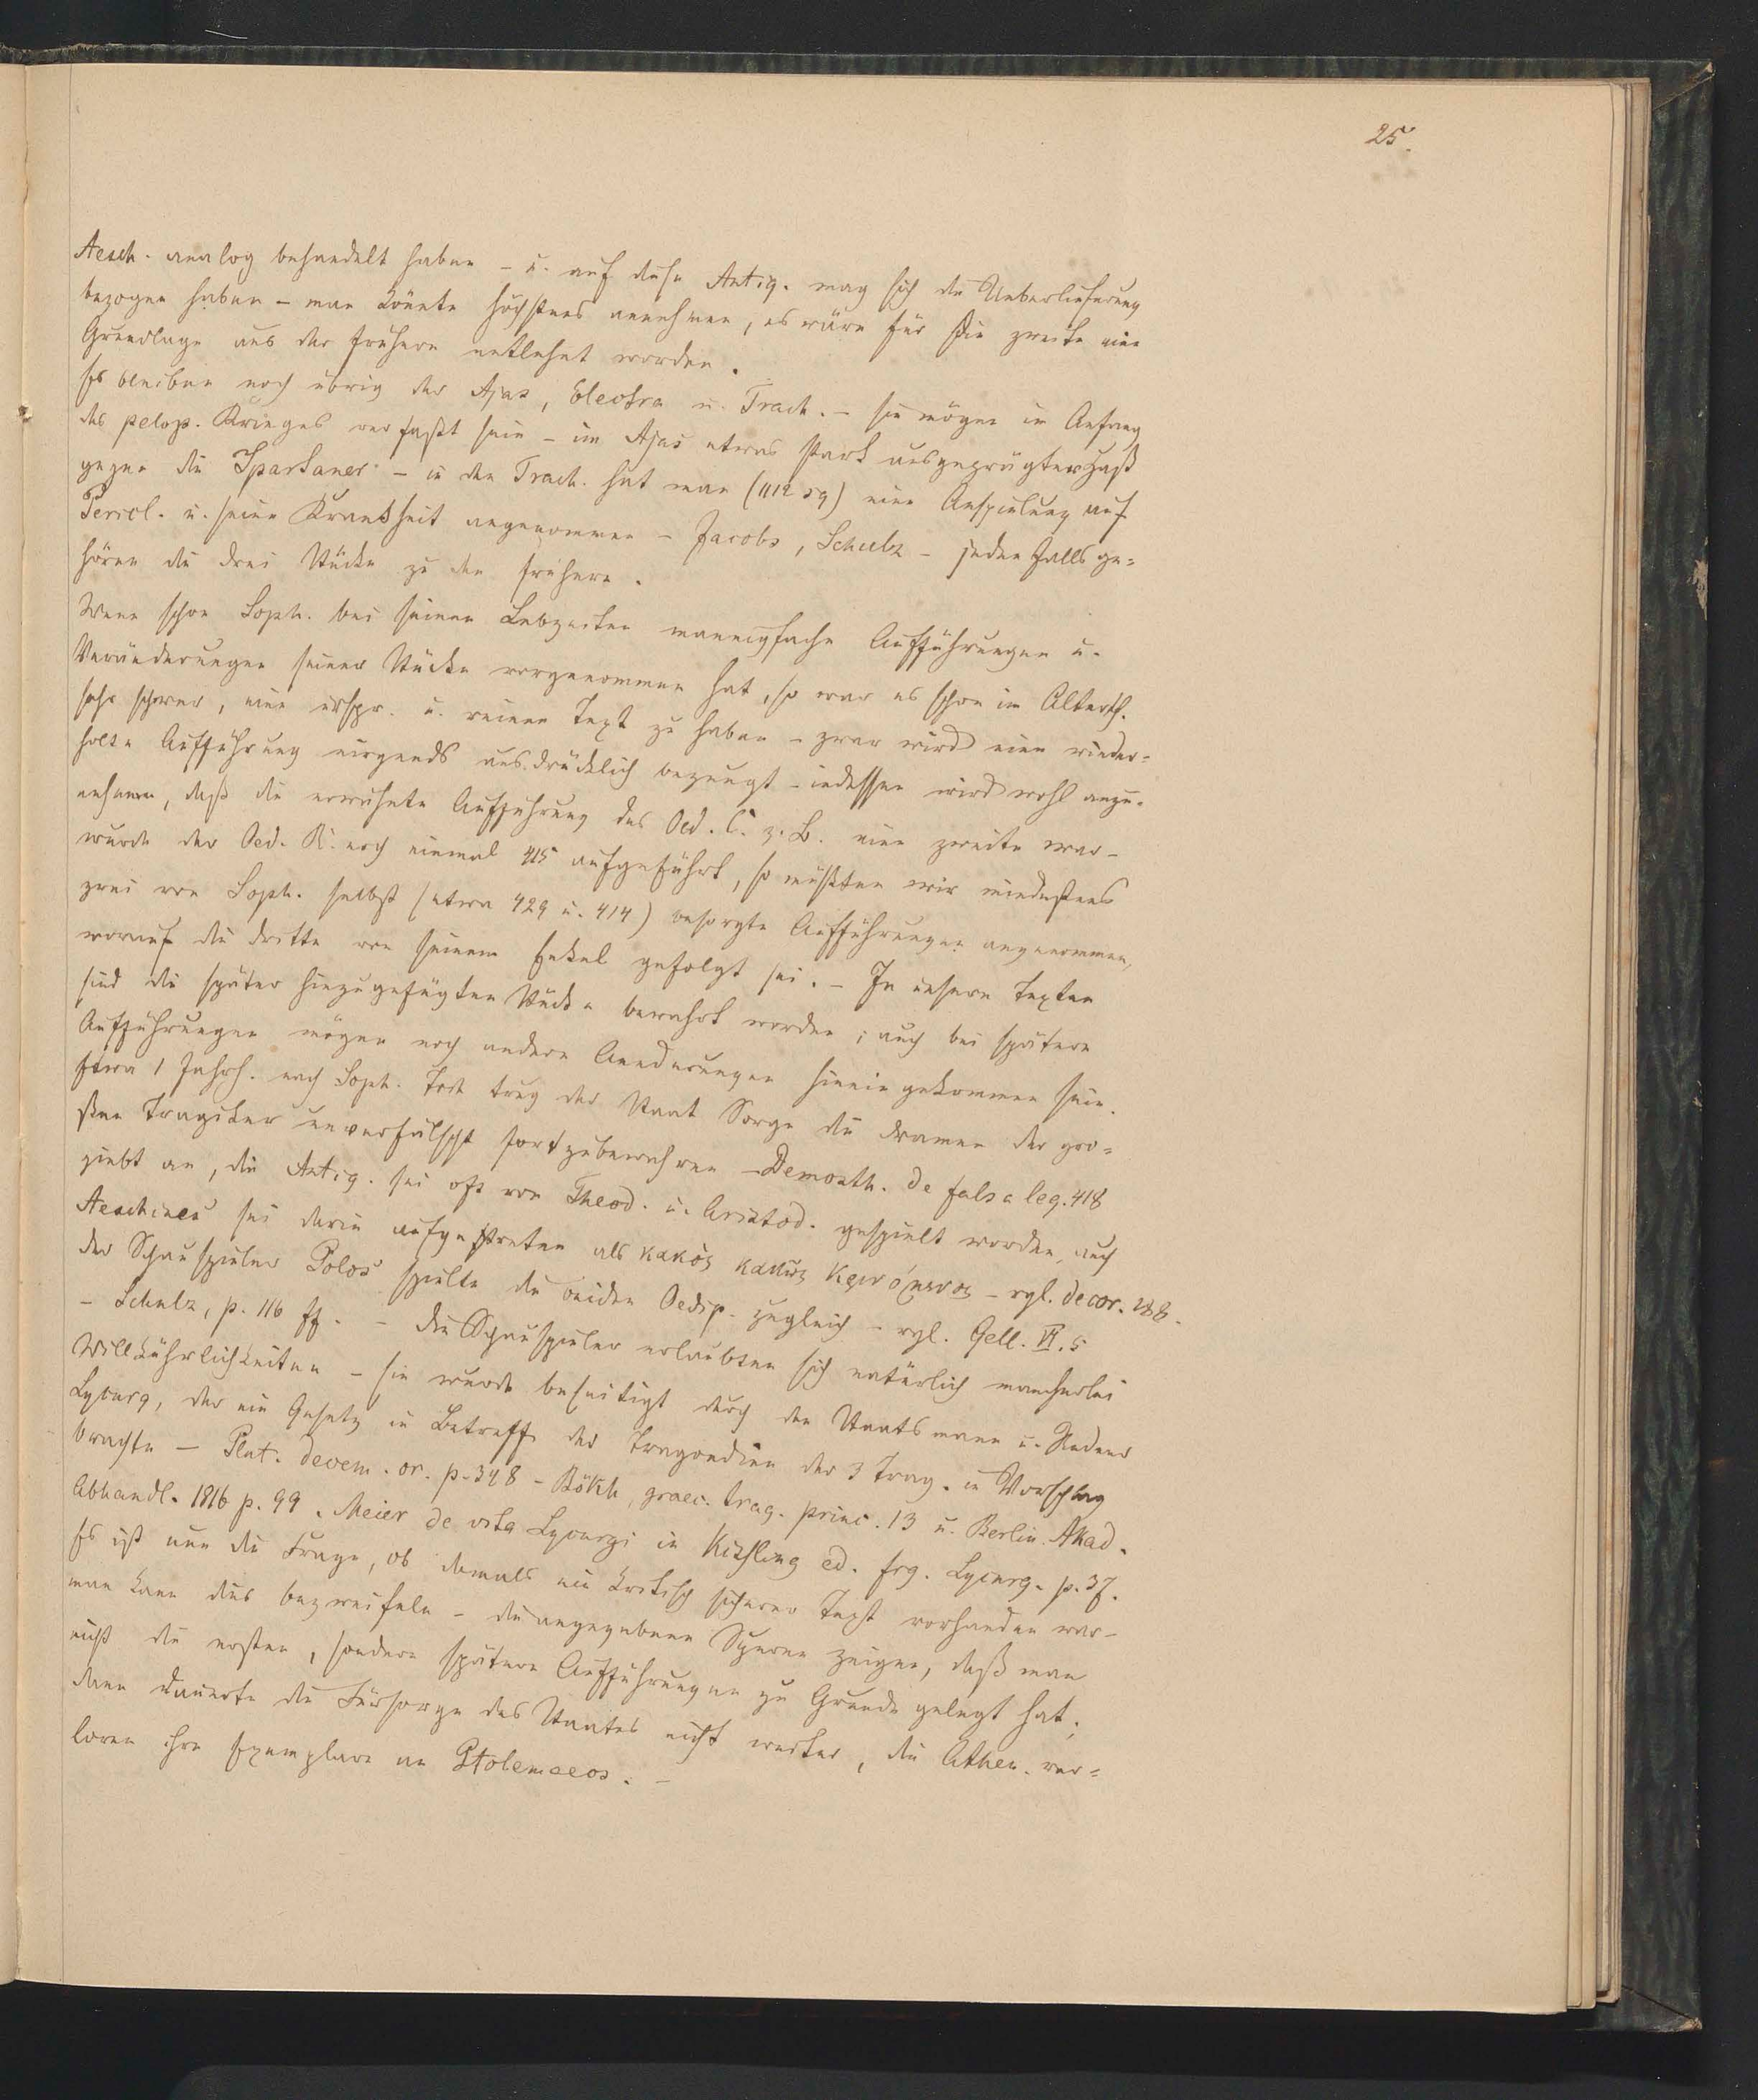 25.
Aesch. analog behandelt haben – u. auf diese Antig. mag sich die Ueberlieferung
bezogen haben – man könnte höchstens annehmen, es wäre für die zweite eine
Grundlage aus der frühern entlehnt worden.
Es bleiben noch übrig der Ajas, Electra u. Trach. – sie mögen im Anfang
des pelop. Krieges verfaßt sein – im Ajas etwas stark ausgeprägter Haß
gegen die Spartaner – in den Trach. hat man (1112 sq) eine Anspielung auf
Pericl. u. seine Krankheit angenommen – Jacobs, Schulz – jeden falls ge=
hören die drei Stücke zu den frühern.
Wenn schon Soph. bei seinen Lebzeiten mannigfache Aufführungen u.
Veränderungen seiner Stücke vorgenommen hat, so war es schon im Alterth.
sehr schwer, einen urspr. u. reinen Text zu haben – zwar wird eine wieder=
holte Aufführung nirgends ausdrücklich bezeugt – indessen wird wohl anzu=
nehmen, daß die erwähnte Aufführung des Oed. C. z. B. eine zweite war –
wurde der Oed. R. noch einmal 415 aufgeführt, so müßten wir mindestens
zwei von Soph. selbst (etwa 429 u. 414) besorgte Aufführungen angenommen,
worauf die dritte von seinem Enkel gefolgt sei. – In unsern Texten
sind die später hinzugefügten Stücke bewahrt worden; auch bei spätern
Aufführungen mögen noch andere Aenderungen hinein gekommen sein.
Etwa 1 Jahrh. nach Soph. Tode trug der Staat Sorge die Dramen der gro=
ßen Tragiker unverfälscht fortzubewahren – Demosth. de falsa leg. 418
giebt an, die Antig. sei oft von Theod. u. Aristod. gespielt worden, auch
Aeschines sei darin aufgetreten als κακὸς κακῶς κρινόμενος – vgl. de cor. 288.
der Schauspieler Polos spielte die beiden Oedip. zugleich – vgl. Gell. VII. 5
– Schulz, p. 116 ff. – die Schauspieler erlaubten sich natürlich mancherlei
Willkührlichkeiten – sie wurde beseitigt durch den Staatsmann u. Redner
Lycurg, der ein Gesetz in Betreff der Tragoedien der 3 Trag. in Vorschlag
brachte – Plut. decem. or. p. 348 – Bökh, graec. trag. princ. 13 u. Berlin. Akad.
Abhandl. 1816 p. 99. Meier de vita Lycurgi in Kießling ed. frg. Lycurg. p. 37.
Es ist nun die Frage, ob damals ein kritisch sicherer Text vorhanden war –
man kann dies bezweifeln – die angegebenen Spuren zeigen, daß man
nicht die ersten, sondern spätere Aufführungen zu Grunde gelegt hat;
dann dauerte die Fürsorge des Staates nicht weiter, die Athen. ver=
loren ihre Exemplare an Ptolemaeos. –